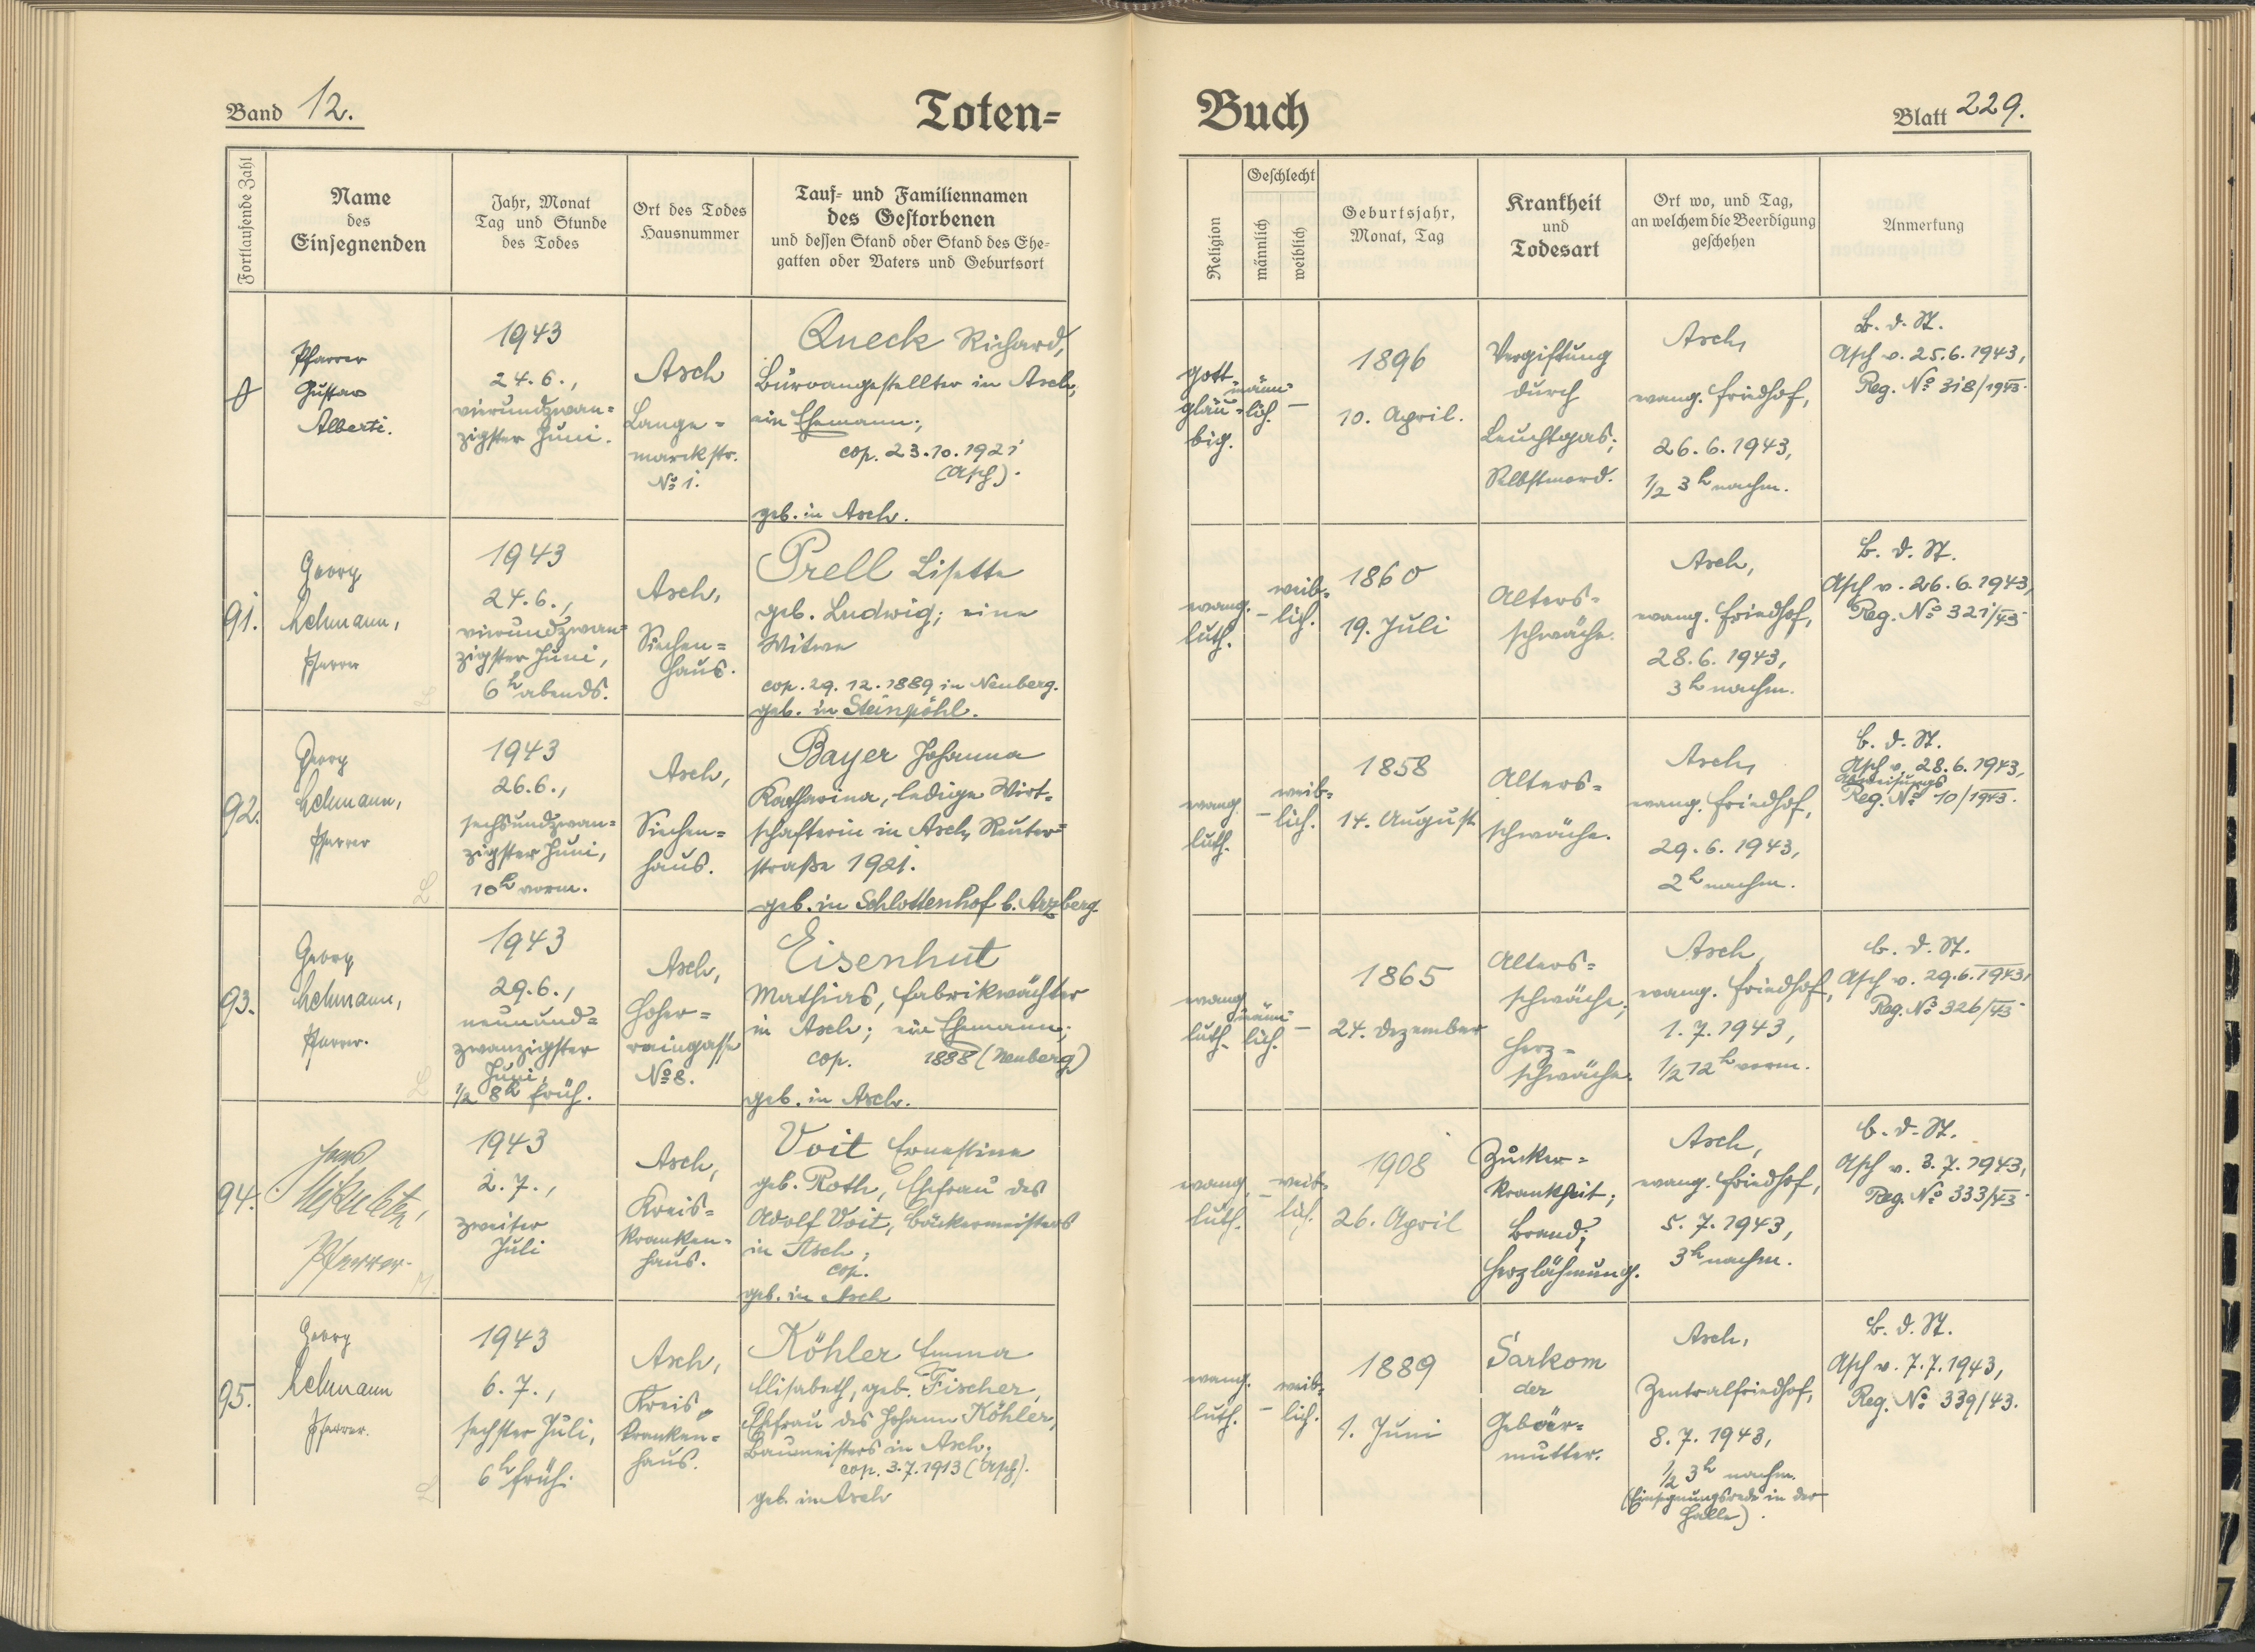 Band 12.
Toten-
Buch
Blatt 229.
Fortlaufende Zahl
Name
des
Einsegnenden
Jahr, Monat
Tag und Stunde
des Todes
Ort des Todes
Hausnummer
Tauf- und Familiennamen
des Gestorbenen
und dessen Stand oder Stand des Ehe-
gatten oder Vaters und Geburtsort
Religion
Geschlecht
männlich
weiblich
Geburtsjahr,
Monat, Tag
Krankheit
und
Todesart
Ort wo, und Tag,
an welchem die Beerdigung
geschehen
Anmerkung
Pfarrer
Gustav
Alberti.
1943
24.6.,
vierundzwan=
zigster Juni.
Asch
Lange=
marckstr.
No 1.
Queck Richard,
Büroangestellter in Asch,
ein Ehemann;
cop. 23.10.1921
(Asch).
geb. in Asch.
gott
gläu=
big.
männ=
lich.
—
1896
10. April.
Vergiftung
durch
Leuchtgas;
Selbstmord.
Asch,
evang. Friedhof,
26.6.1943,
1/2 3h nachm.
B. d. St.
Asch v. 25.6.1943,
Reg. No 318/1943.
91.
Georg
Lehmann,
Pfarrer
1943
24.6.,
vierundzwan=
zigster Juni,
6h abends.
Asch,
Siechen=
haus.
Prell Lisette
geb. Ludwig; eine
Witwe
cop. 29.12.1889 in Neuberg.
geb. in Steinpöhl.
evang.
luth.
—
weib=
lich.
1860
19. Juli
Alters=
schwäche.
Asch,
evang. Friedhof,
28.6.1943,
3h nachm.
B. d. St.
Asch v. 26.6.1943,
Reg. No 321/43
92.
Georg
Lehmann,
Pfarrer
1943
26.6.,
sechsundzwan=
zigster Juni,
10h vorm.
Asch,
Siechen=
haus.
Bayer Johanna
Katharina, ledige Wirt=
schafterin in Asch, Reuter=
straße 1921.
geb. in Schlottenhof b. Arzberg.
evang.
luth.
—
weib=
lich.
1858
14. August
Alters=
schwäche.
Asch,
evang. Friedhof,
29.6.1943,
2h nachm.
B. d. St.
Asch v. 28.6.1943,
Reg. No 10/1943.
93.
Georg
Lehmann,
Pfarrer.
1943
29.6.,
neunund=
zwanzigster
Juni,
1/2 8h früh.
Asch,
Hoher=
raingasse
No 8.
Eisenhut
Mathias, Fabrikwächter
in Asch; ein Ehemann;
cop. 1888 (Neuberg)
geb. in Asch.
evang.
luth.
männ=
lich.
—
1865
24. Dezember
Alters=
schwäche;
Herz=
schwäche.
Asch,
evang. Friedhof,
1.7.1943,
1/2 12h vorm.
B. d. St.
Asch v. 29.6.1943,
Reg. No 326/43
94.
Pfarrer.
1943
2.7.,
zweiter
Juli
Asch,
Kreis=
kranken=
haus.
Voit Ernestine
geb. Roth, Ehefrau des
Adolf Voit, Bäckermeisters
in Asch;
cop.
geb. in Asch
evang.
luth.
—
weib=
lich.
1908
26. April
Zucker=
krankheit;
Brand;
Herzlähmung.
Asch,
evang. Friedhof,
5.7.1943,
3h nachm.
B. d. St.
Asch v. 3.7.1943,
Reg. No 333/43.
95.
Georg
Lehmann
Pfarrer.
1943
6.7.,
sechster Juli,
6h früh.
Asch,
Kreis=
kranken=
haus.
Köhler Emma
Elisabeth, geb. Fischer,
Ehefrau des Johann Köhler,
Baumeisters in Asch.
cop. 3.7.1913 (Asch).
geb. in Asch
evang.
luth.
—
weib=
lich.
1889
1. Juni
Sarkom
der
Gebär=
mutter.
Asch,
Zentralfriedhof,
8.7.1943,
1/2 3h nachm.
(Einsegnungsrede in der
Halle).
B. d. St.
Asch v. 7.7.1943,
Reg. No 339/43.